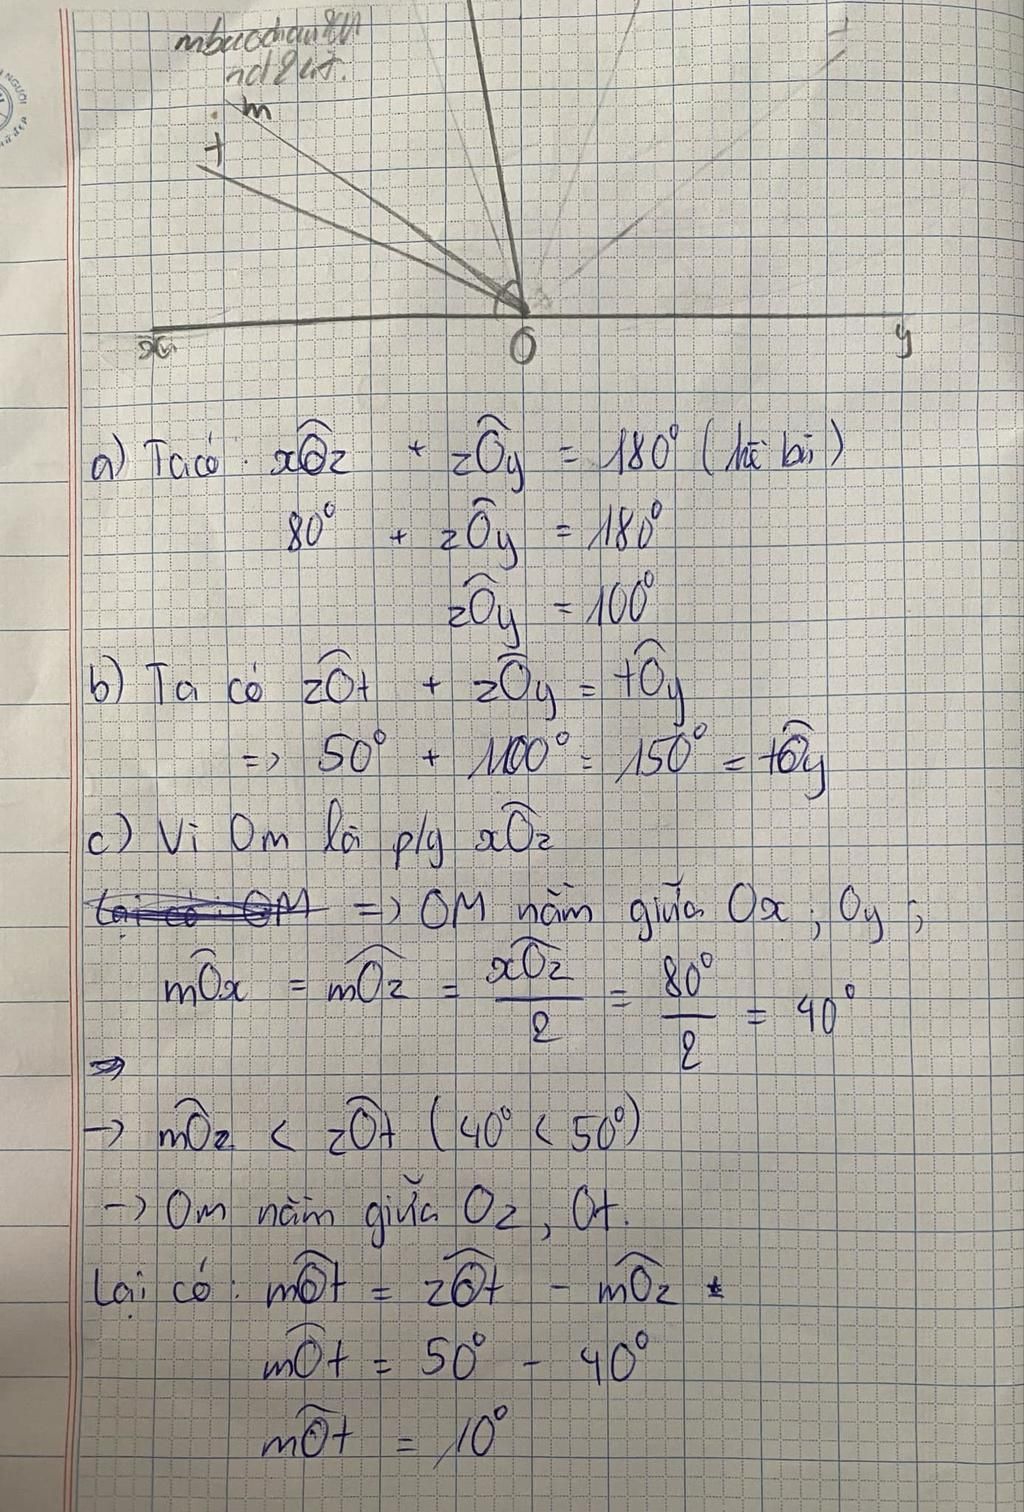 NGƯỜI
m
t
x
O
y
a) Ta có: xOz + zOy = 180° (kề bù)
80° + zOy = 180°
zOy = 100°
b) Ta có zOt + zOy = tOy
=> 50° + 100° = 150° = tOy
c) Vì Om là p/g xOz
=> OM nằm giữa Ox, Oy;
mOx = mOz = xOz/2 = 80°/2 = 40°
-> mOz < zOt (40° < 50°)
-> Om nằm giữa Oz, Ot.
Lại có: mOt = zOt - mOz
mOt = 50° - 40°
mOt = 10°